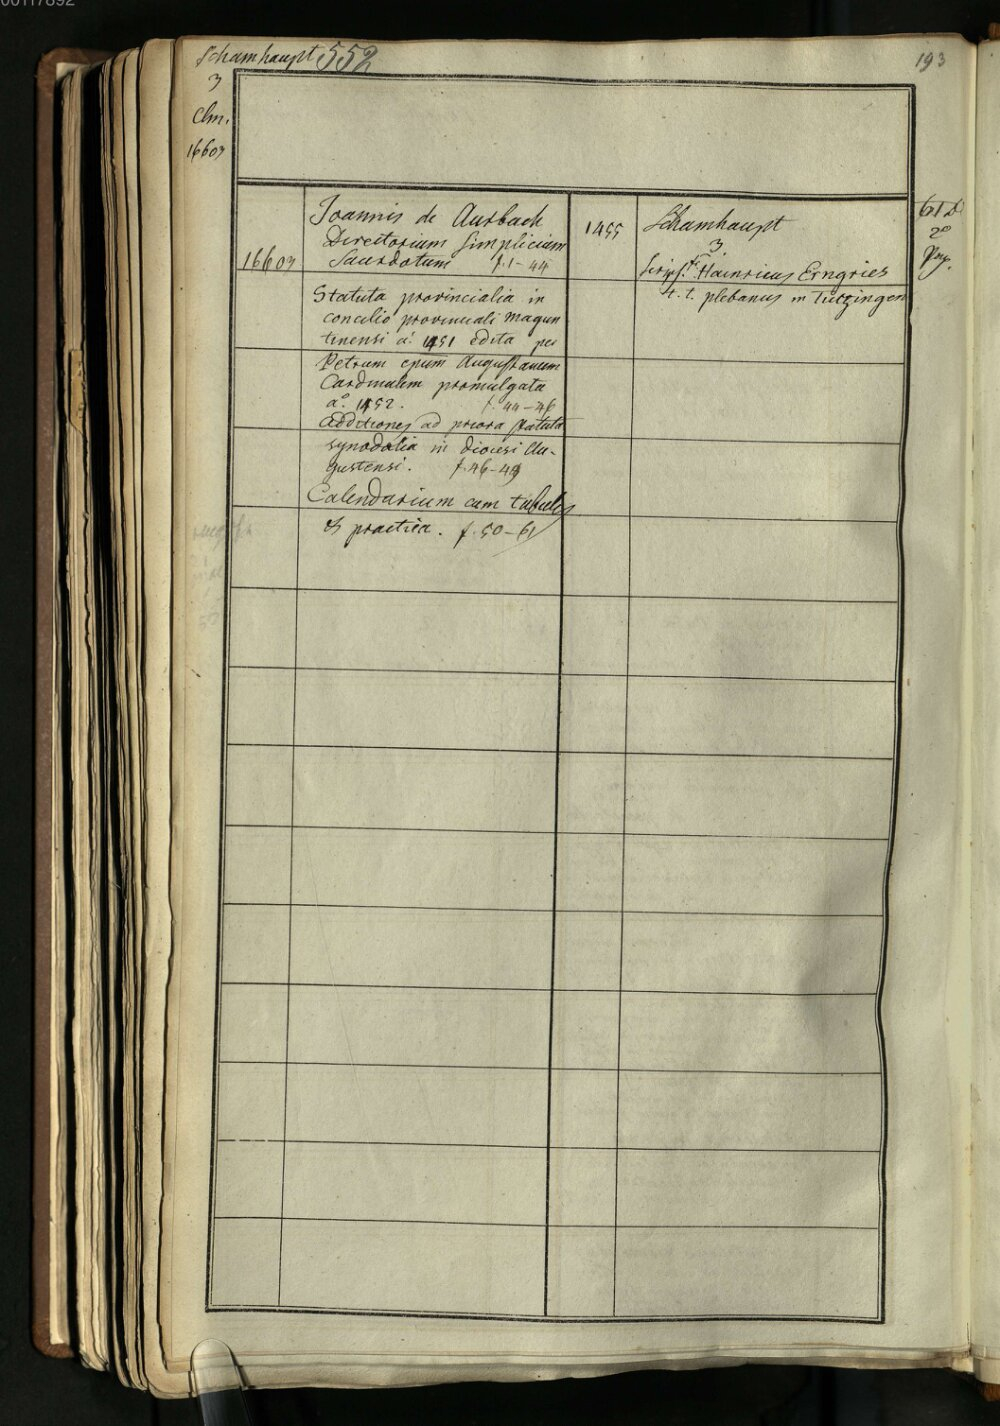 00117892
Schamhaupt 552
193
3
Clm.
16603
16603
Joannis de Aurbach
Directorium simplicium
Sacerdotum f. 1-44
Statuta provincialia in
concilio provinciali magun
tinensi aº 1451 edita per
Petrum epum Augustanum
Cardinalem promulgata
aº. 1452. f. 44-46
Additiones ad priora statuta
synodalia in diocesi Au-
gustensi. f. 46-49
Calendarium cum tabulis
et practica. f. 50-61
1455
Schamhaupt
3.
Scrips. Hainricus Erngries
t. t. plebanus in Tutzingen
61 Bl
2º
Pap.